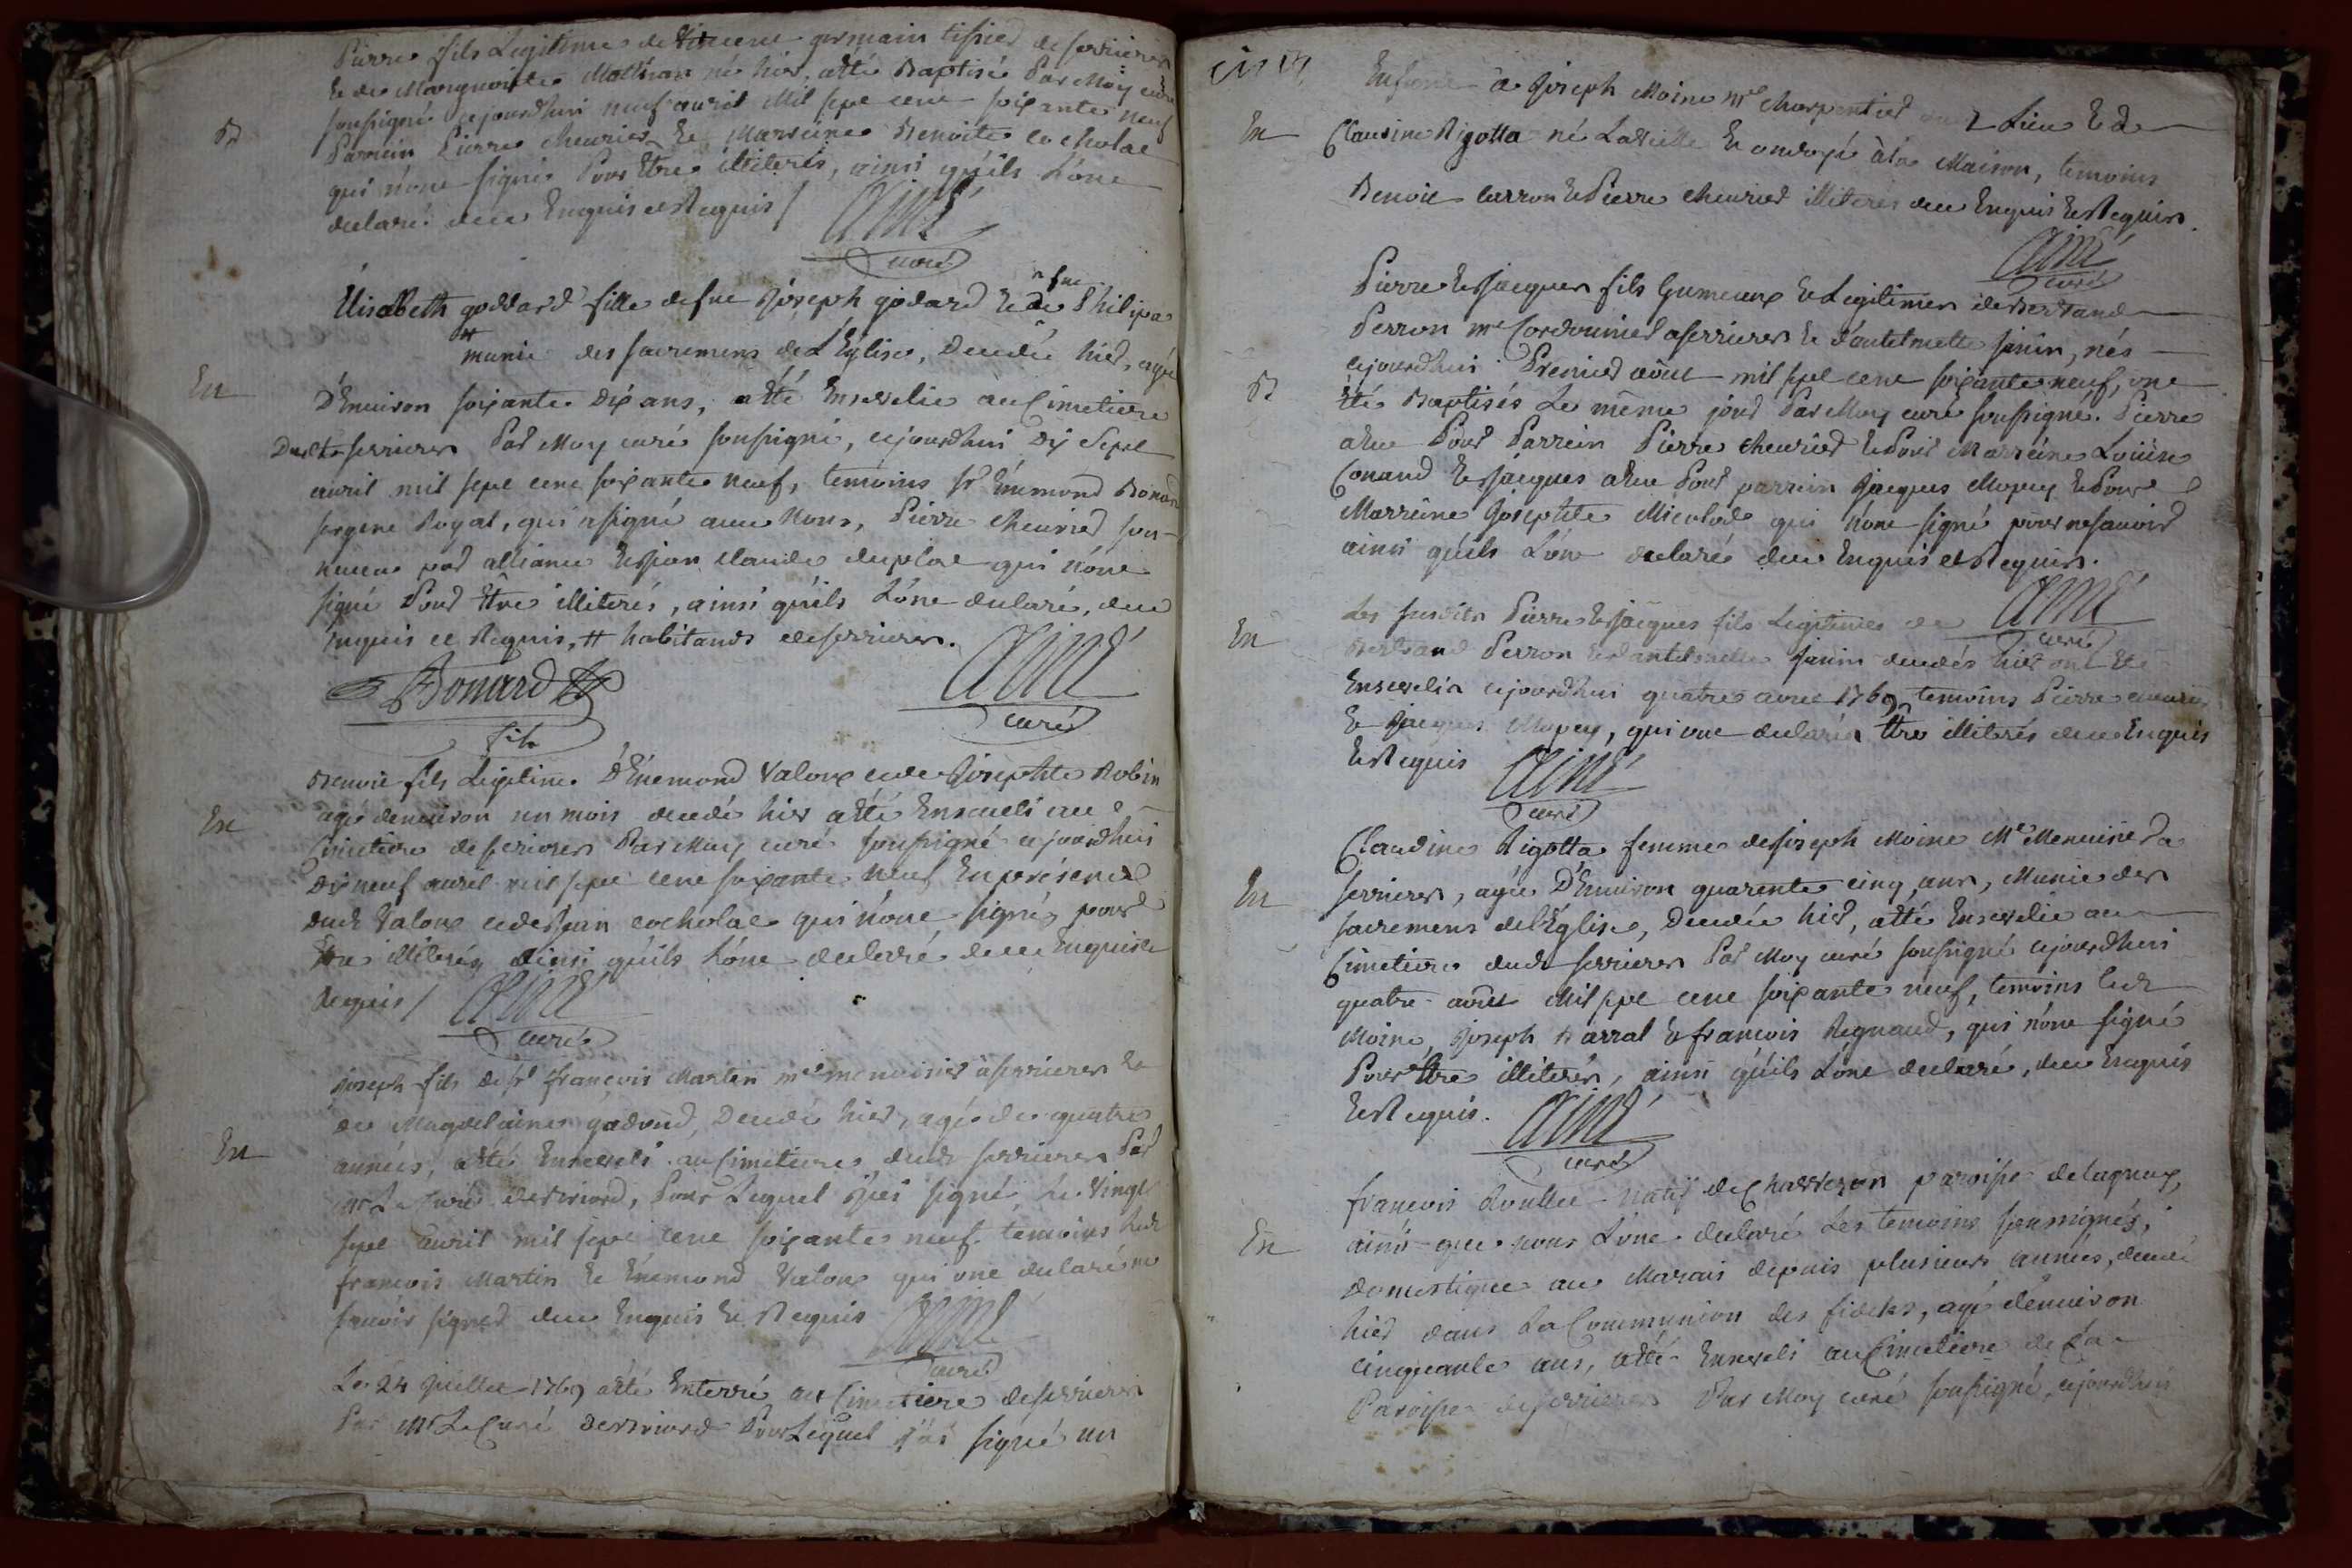 Pierre fils Legitime de Vincent germain tissier de serrieres
Et de Marguerite Mollian né hier, atté Baptisé Par Moy curé
soussigné cejourdhui neuf avril Mil sept cent soixante neuf
B
Parrein Pierre cheurier Et Marreine Benoite cocholat
qui n'ont signés Pour Etre illiterés, ainsi qu'ils L'ont
declaré deue Enquis et Requis /
aimé
curé
Elisabeth goddard fille de fue Joseph godard Et de fue Philipa
# munie des sacremens de L'Eglise, Decedée hier, agée
En
D'Environ soixante Dix ans, atté Ensevelie au Cimetiere
Dudt serrieres Par Moy curé soussigné, cejourdhui Dix Sept
avril mil sept cent soixante neuf, temoins sr Enimond Bonard
sergent Royal, qui a signé avec Nous, Pierre cheurier son
neveu par alliance Et Jean claude duplat qui n'ont
signé Pour Etre illiterés, ainsi qu'ils L'ont declaré, deue
Enquis et Requis, # habitands de serrieres.
Bonard
fils
aimé
curé
Benoit fils Legitime D'Enemond Valoux et de Josephte Robin
En
agé denviron un mois decedé hier atté Enseveli au
Cimetiere de serrieres Par Moy curé soussigné cejourdhui
Dix neuf avril mil sept cent soixante neuf En présence
dudt Valoux et de Jean cocholat qui n'ont signés pour
Etre illiterés, ainsi qu'ils L'ont declaré deue Enquis et
Requis /
aimé
curé
Joseph fils de sr francois Martin me menuisier a serrieres Et
de Magdelaine gadoud, Decedé hier, agé de quatre
En
années, atté Enseveli au Cimetiere dudt serrieres Par
Mr Le Curé de Briord, Pour Lequel J'ai signé Le Vingt
sept avril mil sept cent soixante neuf temoins Ledt
francois Martin Et Enemond Valoux qui ont declaré ne
savoir signer deue Enquis Et Requis
aimé
curé
Le 24 juillet 1769 atté Enterré au Cimetiere de serrieres
Par Mr Le Curé de Briord Pour Lequel J'ai signé un
cinq
Enfant a Joseph Moine Me charpentier Lieu Et de
En
Claudine Rigotta né La veille Et ondoyé à la Maison, temoins
Benoit carron Et Pierre cheurier illiterés deue Enquis Et Requis.
aimé
curé
Pierre Et Jacques fils Gumeaux Et Legitimes de Bertrand
Perron me Cordounier a serrieres Et d'antelmette janin, nés
cejourdhui Premier août mil sept cent soixante neuf, ont
B
été Baptisés Le même jour Par Moy curé soussigné. Pierre
a eu Pour Parrein Pierre cheurier Et Pour Marreine Louise
Conand Et Jacques a eu Pour parrein Jacques Mopey Et Pour
Marreine Josephte Micolod qui n'ont signé pour ne savoir
ainsi qu'ils L'ont declaré deue Enquis et Requis.
aimé
curé
Les susdits Pierre Et Jacques fils Legitimes de
En
Bertrand Perron Et d'antelmette janin decedés hier ont Eté
Ensevelis cejourdhui quatre aout 1769, temoins Pierre cheurier
Et Jacques Mopey, qui ont declarés Etre illiterés deue Enquis
Et Requis
aimé
curé
Claudine Rigotta femme de Joseph Moine Me Menuisier a
En
serrieres, agée D'Environ quarente cinq ans, Munie des
sacremens de l'Eglise, Decedée hier, atté Ensevelie au
Cimetiere dudt serrieres Par Moy curé soussigné cejourdhui
quatre août Mil sept cent soixante neuf, temoins Ledt
Moine, Joseph Barral Et francois Regnaud, qui n'ont signé
Pour Etre illiterés, ainsi qu'ils L'ont declaré, deue Enquis
Et Requis.
aimé
curé
francois Roullet natif de Chavrezon paroisse de lagneux,
En
ainsi que nous L'ont declaré Les temoins soussignés,
domestique au Marais depuis plusieurs années, decedé
hier dans La Communion des fideles, agé d'environ
cinquante ans, atté Enseveli au Cimetiere de La
Paroisse de serrieres Par Moy curé soussigné, cejourdhui